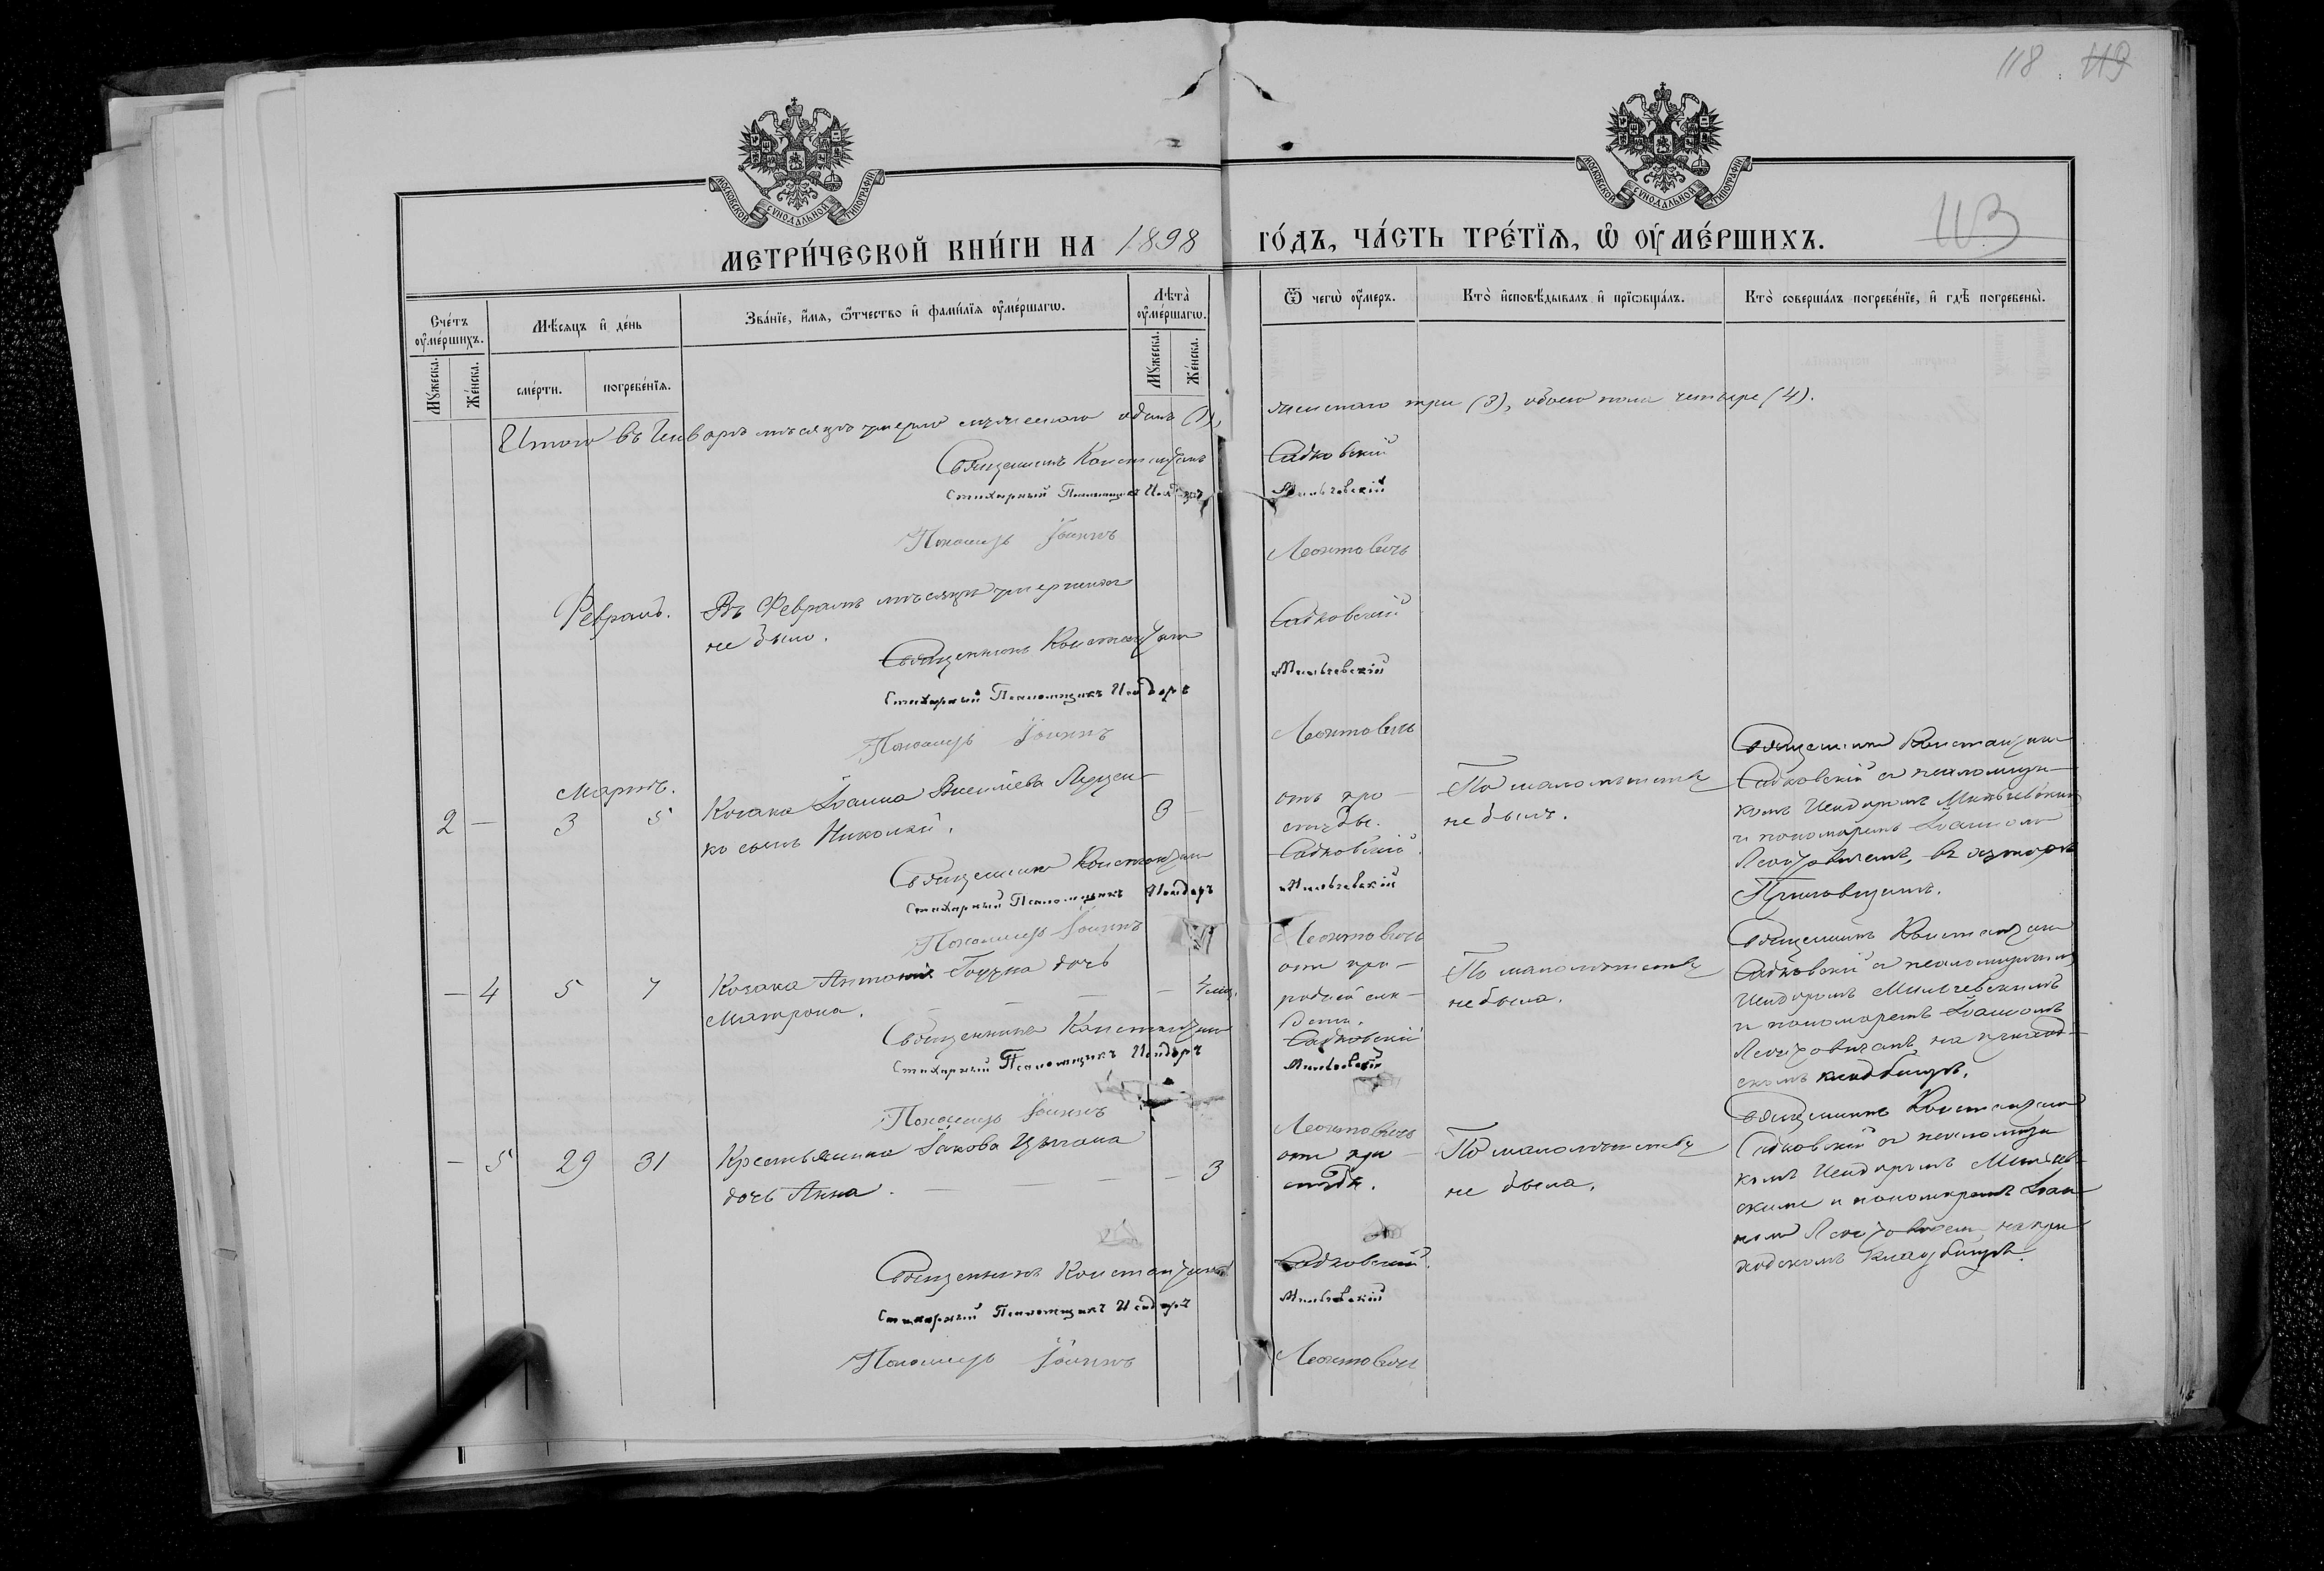 118 119
МОСКОВСКОЙ СѴНОДАЛЬНОЙ ТИПОГРАФІИ
МОСКОВСКОЙ СѴНОДАЛЬНОЙ ТИПОГРАФІИ
113
МЕТРИ́ЧЕСКОЙ КНИ́ГИ НА 1898 ГО́ДЪ, ЧА́СТЬ ТРЕ́ТЇѦ, Ѡ҆ ОУ҆МЕ́РШИХЪ.
Сче́тъ оу҆ме́ршихъ.
Мѣ́сяцъ и҆ де́нь
Зва́нїе, и҆́мѧ, ѻ҆́тчество и҆ фами́лїѧ оу҆ме́ршагѡ.
Лѣ́та оу҆ме́ршагѡ.
Ѿ чегѡ̀ оу҆́меръ.
Кто̀ и҆сповѣ́дывалъ и҆ прїѡбща́лъ.
Кто̀ соверша́лъ погребе́нїе, и҆ гдѣ̀ погребены̀.
Мꙋ́жеска.
Же́нска.
сме́рти.
погребе́нїѧ.
Мꙋ́жеска.
Же́нска.
Итого въ Январѣ мѣсяцѣ умерло мужескаго одинъ (1), женскаго три (3), обоего пола четыре (4).
Священникъ Константинъ Садковскій
Стихарный Псаломщикъ Исидоръ Мильчевскій
Пономарь Іоаннъ Леонтовичъ
Февраль.
Въ Февралѣ мѣсяцѣ умершихъ
не было.
Священникъ Константинъ Садковскій
Стихарный Псаломщикъ Исидоръ Мильчевскій
Пономарь Іоаннъ Леонтовичъ
Мартъ.
2 — 3 5
Козака Іоанна Васильева Луцен-
ко сынъ Николай.
9 —
отъ про-
студы.
По малолѣтству
не былъ.
Священникъ Константинъ
Садковскій съ псаломщи-
комъ Исидоромъ Мильчевскимъ
и пономаремъ Іоанномъ
Леонтовичемъ, въ
Священникъ Константинъ Садковскій
Стихарный Псаломщикъ Исидоръ Мильчевскій
Пономарь Іоаннъ Леонтовичъ
— 4 5 7
Козака Антонія дочь
Матрона. — — —
отъ при-
родной сла-
бости.
По малолѣтству
не была.
Священникъ Константинъ
Садковскій съ псаломщикомъ
Исидоромъ Мильчевскимъ
и пономаремъ Іоанномъ
Леонтовичемъ на приход-
скомъ кладбищѣ.
Священникъ Константинъ Садковскій
Стихарный Псаломщикъ Исидоръ Мильчевскій
Пономарь Іоаннъ Леонтовичъ
— 5 29 31
Крестьянина Іакова Цыгана
дочь Анна. — — — — 3
отъ про-
студы.
По малолѣтству
не была.
Священникъ Константинъ
Садковскій съ псаломщи-
комъ Исидоромъ Мильчев-
скимъ и пономаремъ Іоан-
номъ Леонтовичемъ на при-
ходскомъ кладбищѣ.
Священникъ Константинъ Садковскій.
Стихарный Псаломщикъ Исидоръ Мильчевскій
Пономарь Іоаннъ Леонтовичъ